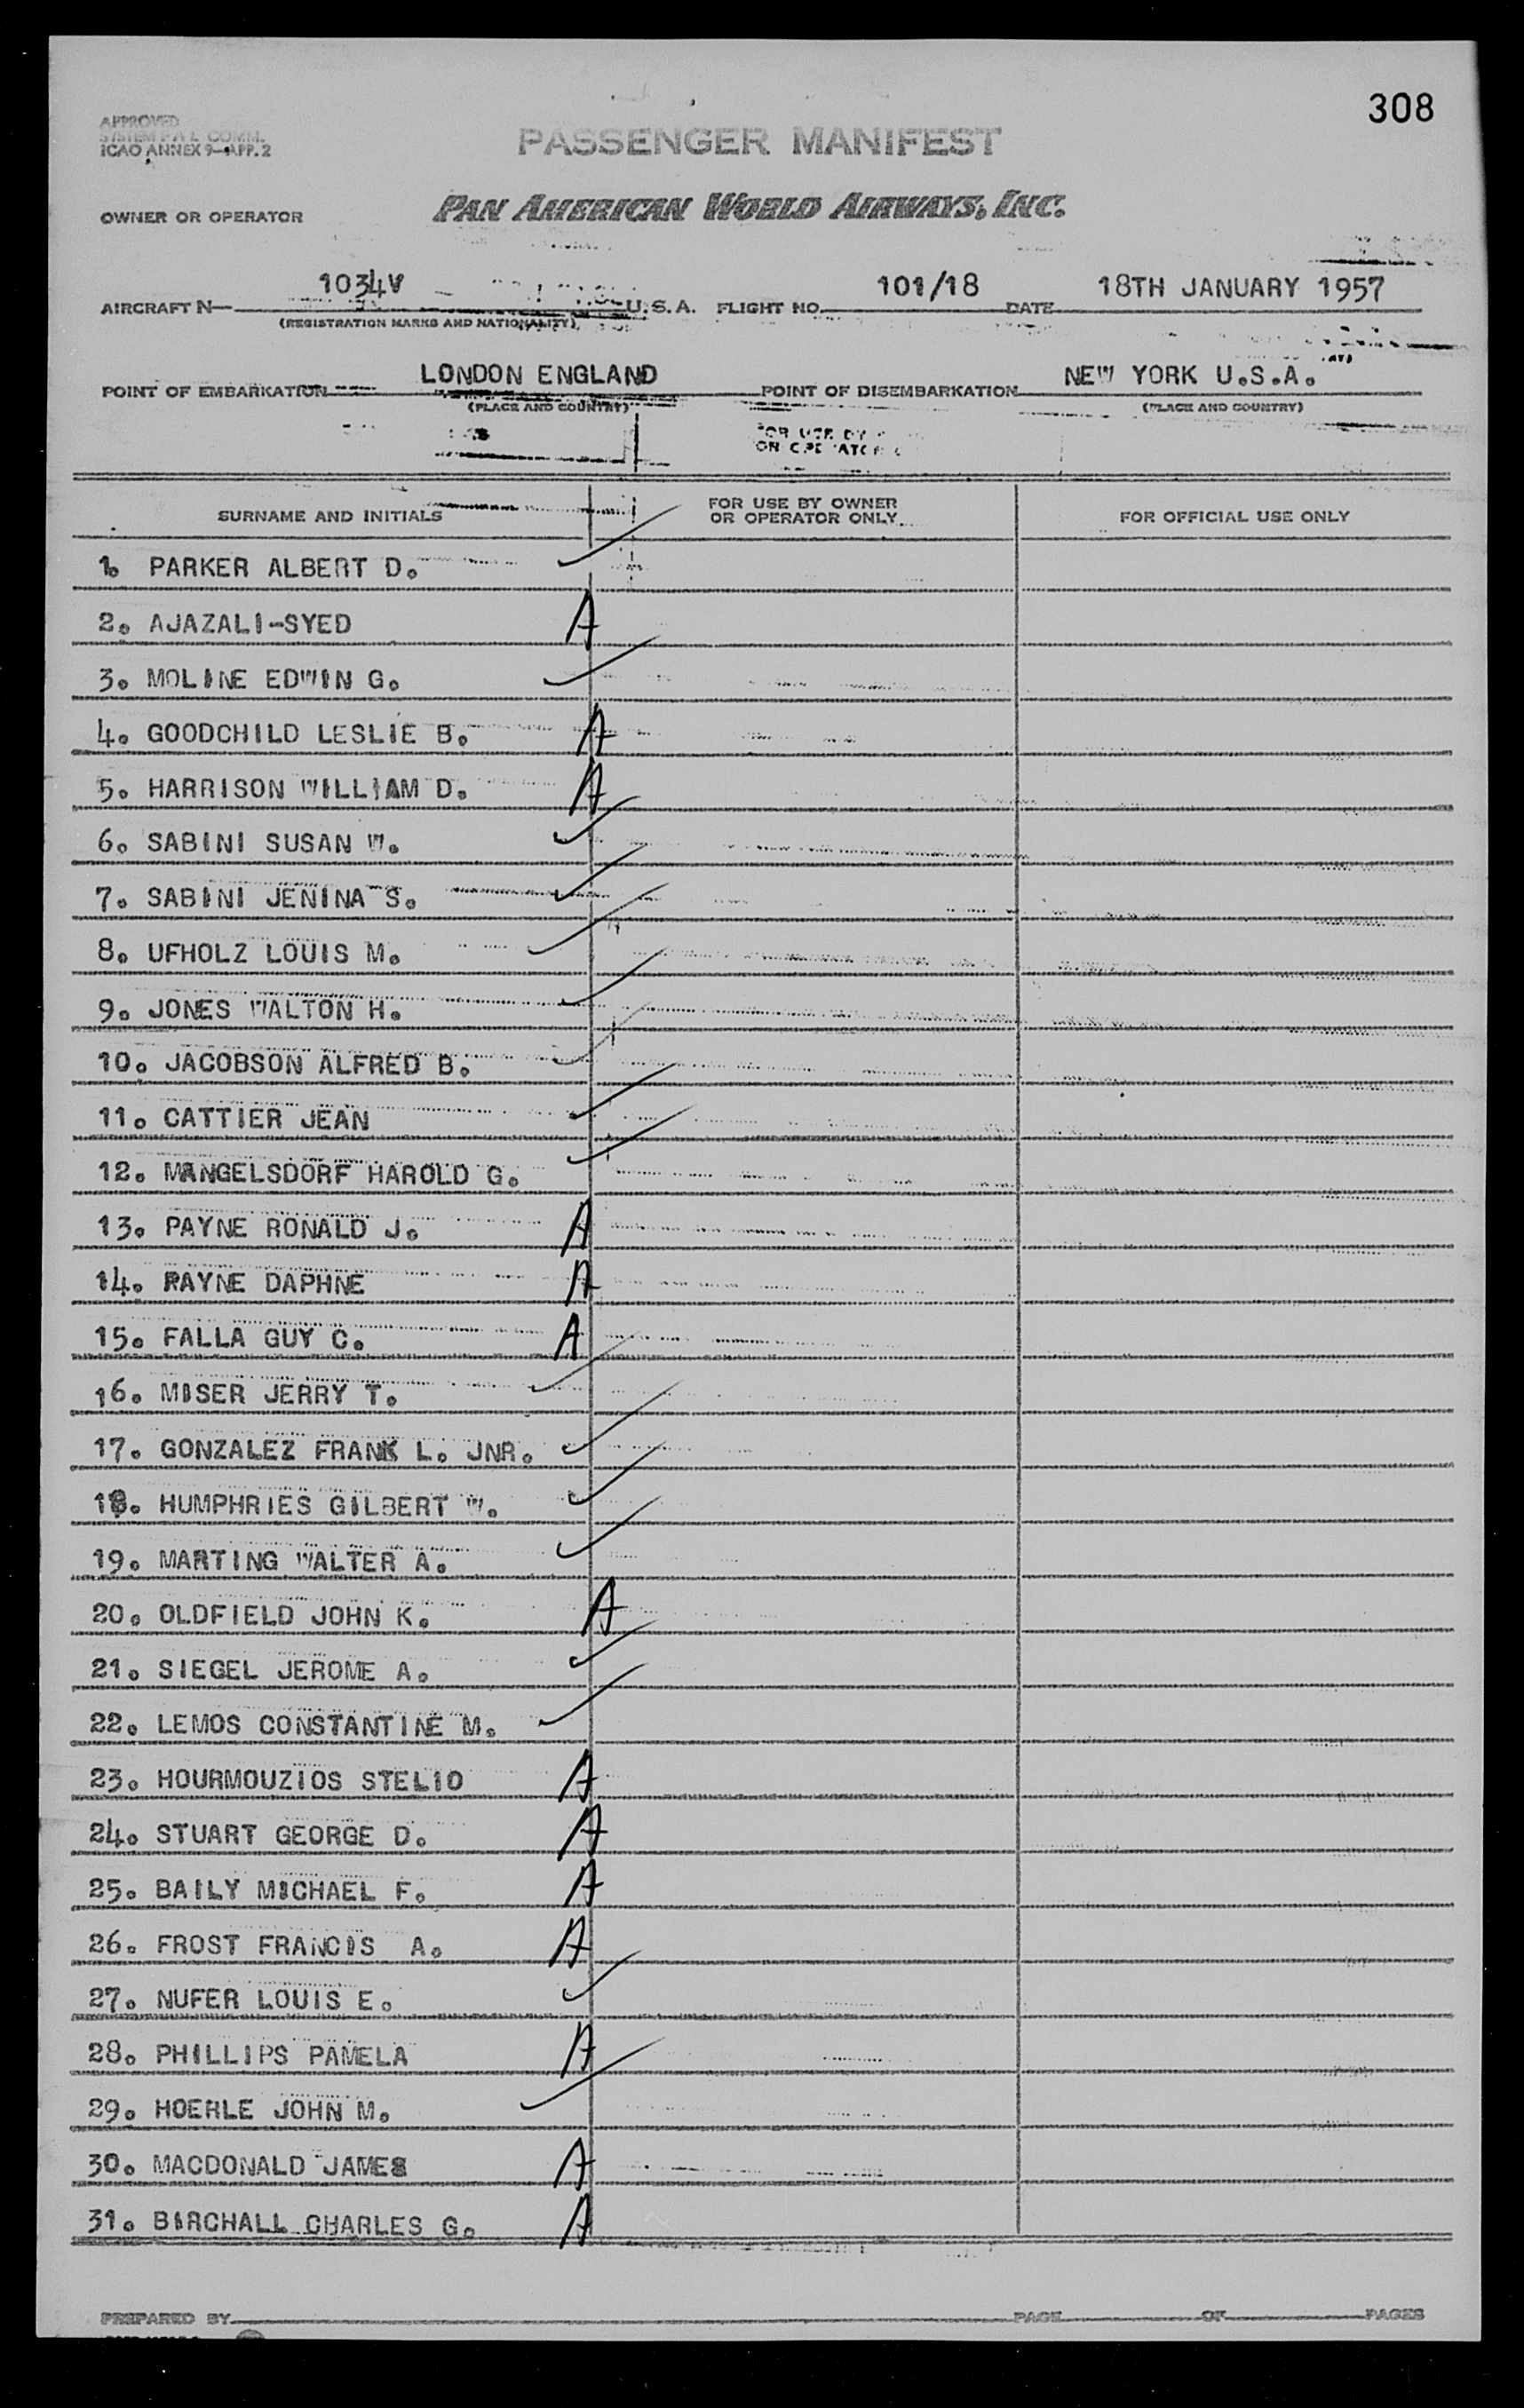 308
APPROVED
SYSTEM F A L COMM.
ICAO ANNEX 9—APP. 2
PASSENGER MANIFEST
OWNER OR OPERATOR
PAN AMERICAN WORLD AIRWAYS, INC.
AIRCRAFT N— 1034V U.S.A. FLIGHT NO. 101/18 DATE 18TH JANUARY 1957
(REGISTRATION MARKS AND NATIONALITY)
POINT OF EMBARKATION LONDON ENGLAND POINT OF DISEMBARKATION NEW YORK U.S.A.
(PLACE AND COUNTRY) (PLACE AND COUNTRY)
SURNAME AND INITIALS
FOR USE BY OWNER
OR OPERATOR ONLY
FOR OFFICIAL USE ONLY
1. PARKER ALBERT D. ✓
2. AJAZALI-SYED A
3. MOLINE EDWIN G. ✓
4. GOODCHILD LESLIE B. A
5. HARRISON WILLIAM D. A
6. SABINI SUSAN W. ✓
7. SABINI JENINA S. ✓
8. UFHOLZ LOUIS M. ✓
9. JONES WALTON H. ✓
10. JACOBSON ALFRED B. ✓
11. CATTIER JEAN ✓
12. MANGELSDORF HAROLD G. ✓
13. PAYNE RONALD J. A
14. PAYNE DAPHNE A
15. FALLA GUY C. A
16. MISER JERRY T. ✓
17. GONZALEZ FRANK L. JNR. ✓
18. HUMPHRIES GILBERT W. ✓
19. MARTING WALTER A. ✓
20. OLDFIELD JOHN K. A
21. SIEGEL JEROME A. ✓
22. LEMOS CONSTANTINE M. ✓
23. HOURMOUZIOS STELIO A
24. STUART GEORGE D. A
25. BAILY MICHAEL F. A
26. FROST FRANCIS A. A
27. NUFER LOUIS E. ✓
28. PHILLIPS PAMELA A
29. HOERLE JOHN M. ✓
30. MACDONALD JAMES A
31. BIRCHALL CHARLES G. A
PREPARED BY PAGE OF PAGES